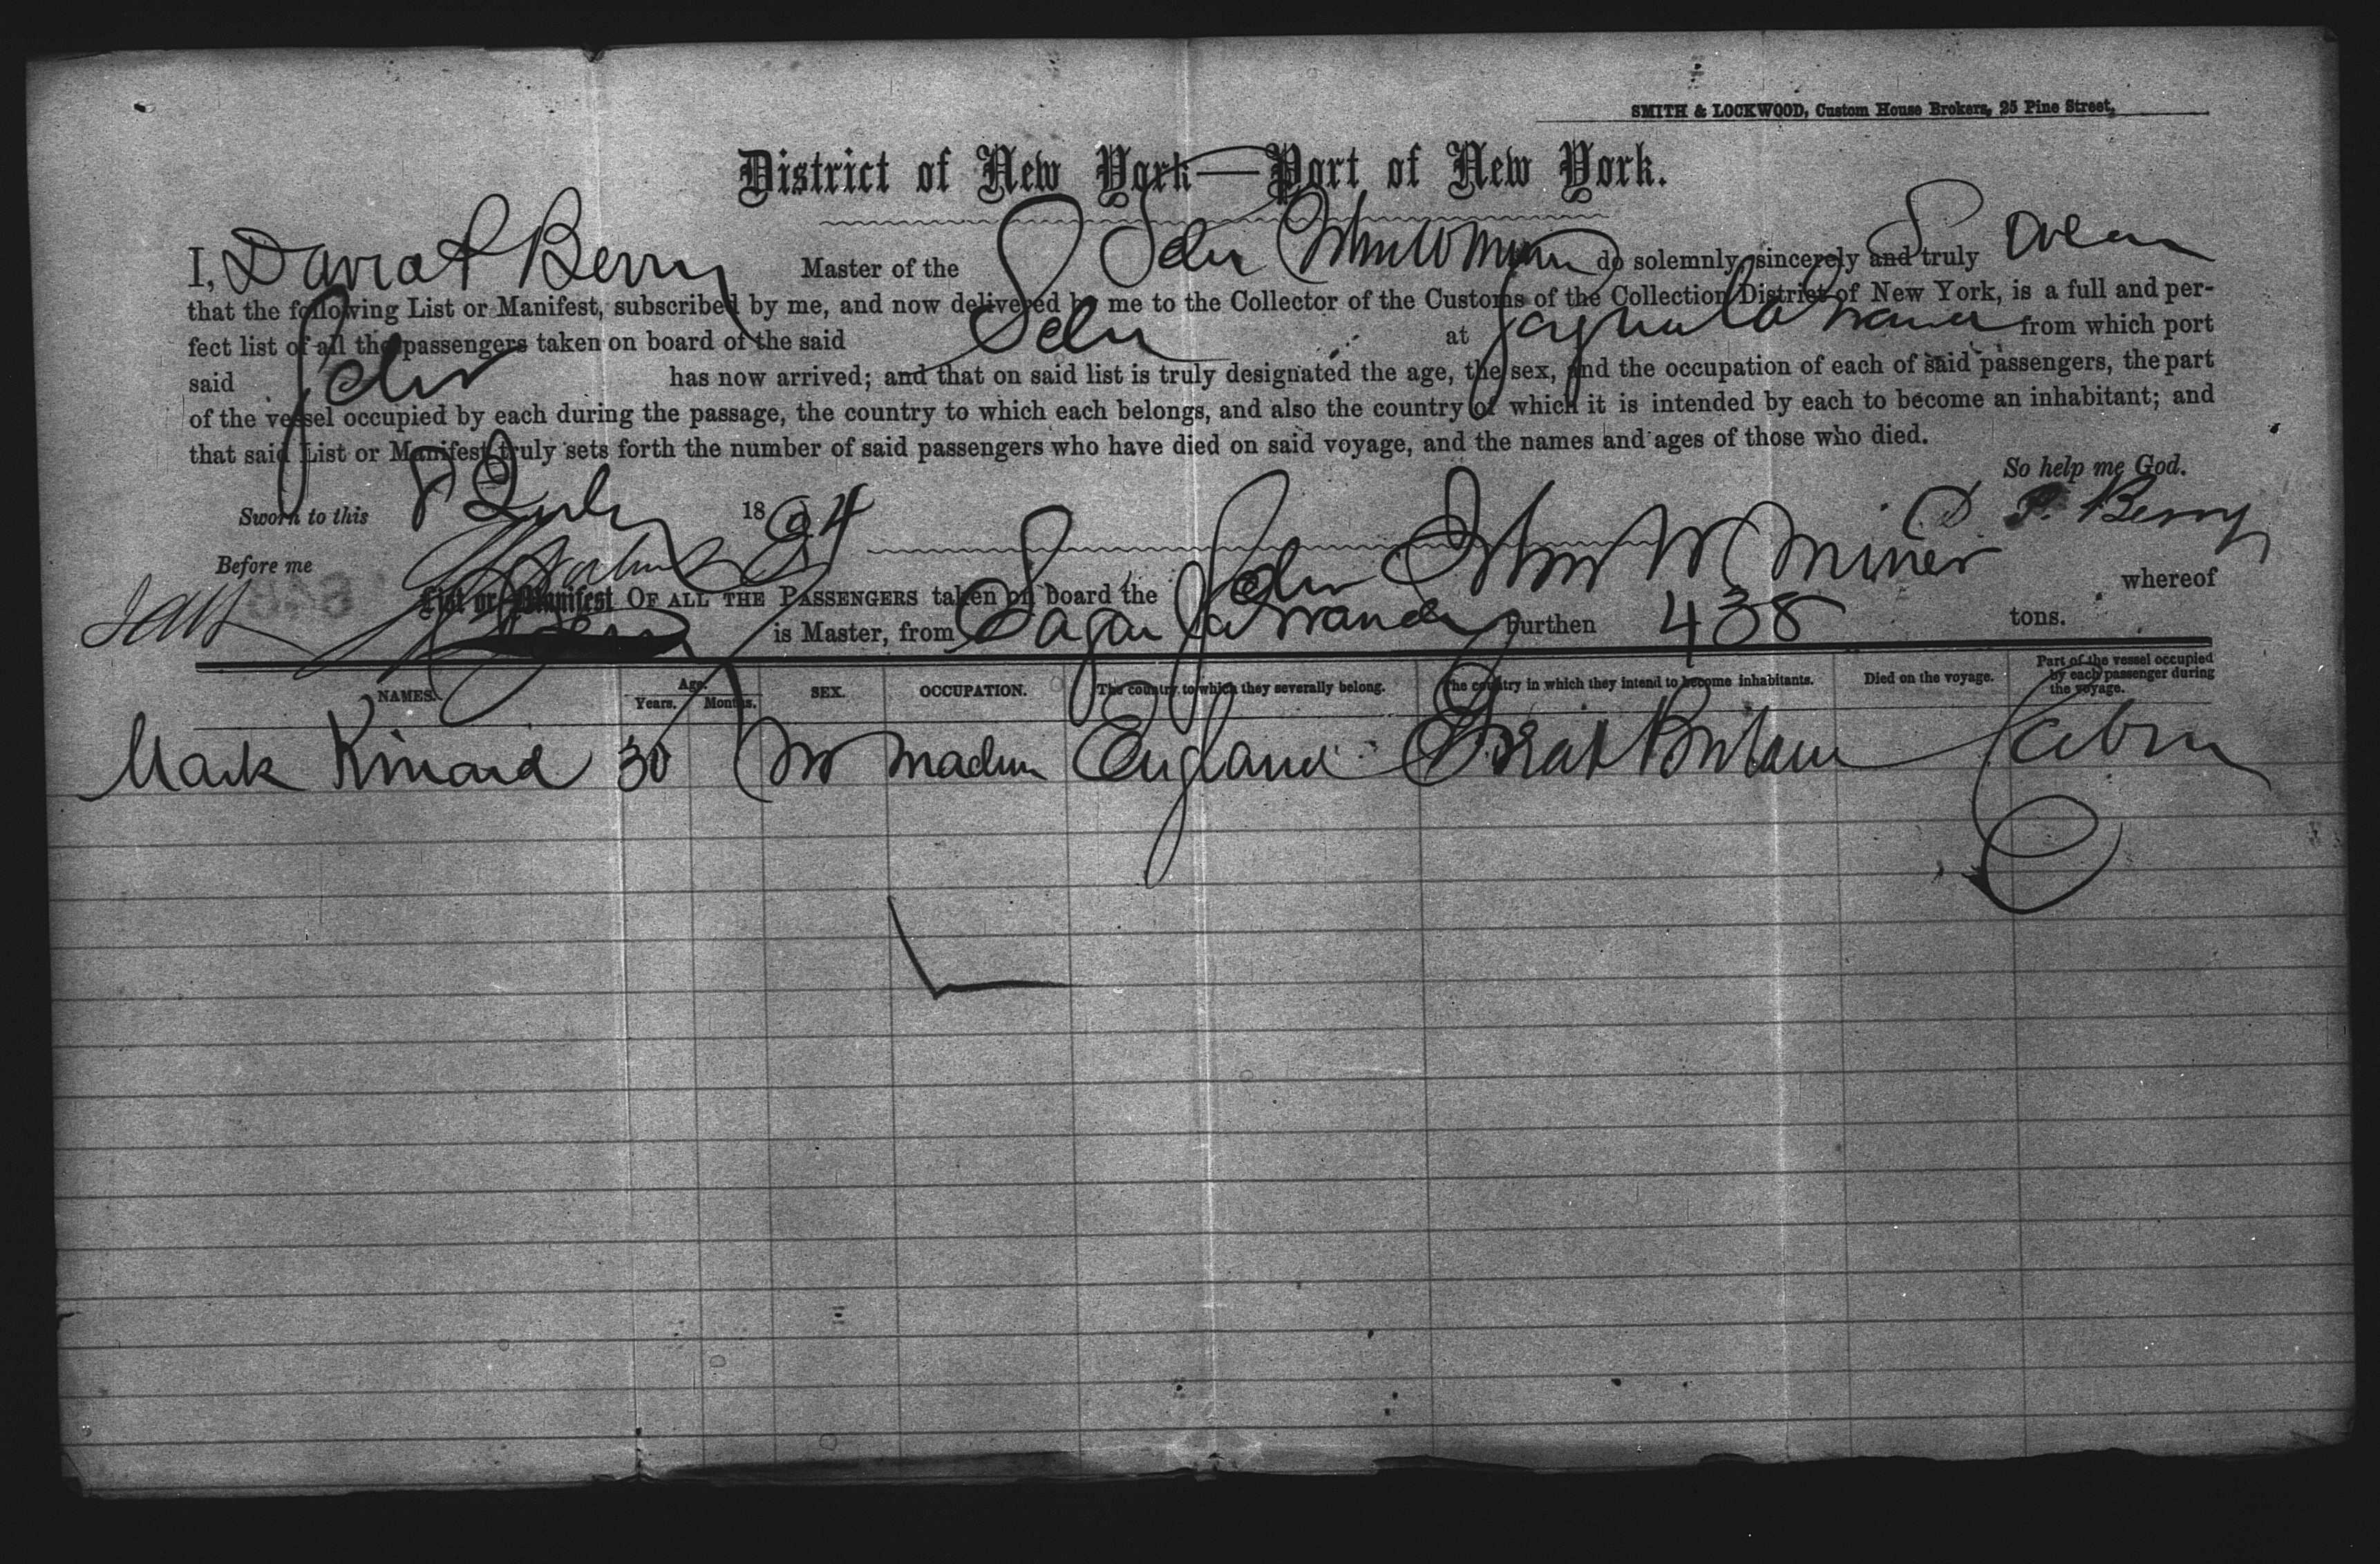 SMITH & LOCKWOOD, Custom House Brokers, 25 Pine Street,
District of New York—Port of New York.
I, David P Berry Master of the Schr John W Miner do solemnly, sincerely and truly Swear
that the following List or Manifest, subscribed by me, and now delivered by me to the Collector of the Customs of the Collection District of New York, is a full and per-
fect list of all the passengers taken on board of the said Schr at Sagua La Grande from which port
said Schr has now arrived; and that on said list is truly designated the age, the sex, and the occupation of each of said passengers, the part
of the vessel occupied by each during the passage, the country to which each belongs, and also the country of which it is intended by each to become an inhabitant; and
that said List or Manifest truly sets forth the number of said passengers who have died on said voyage, and the names and ages of those who died.
So help me God.
Sworn to this 8 July 1894
D P. Berry
Before me
List or Manifest OF ALL THE PASSENGERS taken on board the Schr John W Miner whereof
is Master, from Sagua La Grande burthen 438 tons.
NAMES. Age. Years. Months. SEX. OCCUPATION. The country to which they severally belong. The country in which they intend to become inhabitants. Died on the voyage. Part of the vessel occupied by each passenger during the voyage.
Mark Kinaid 30 m England Great Britain Cabin